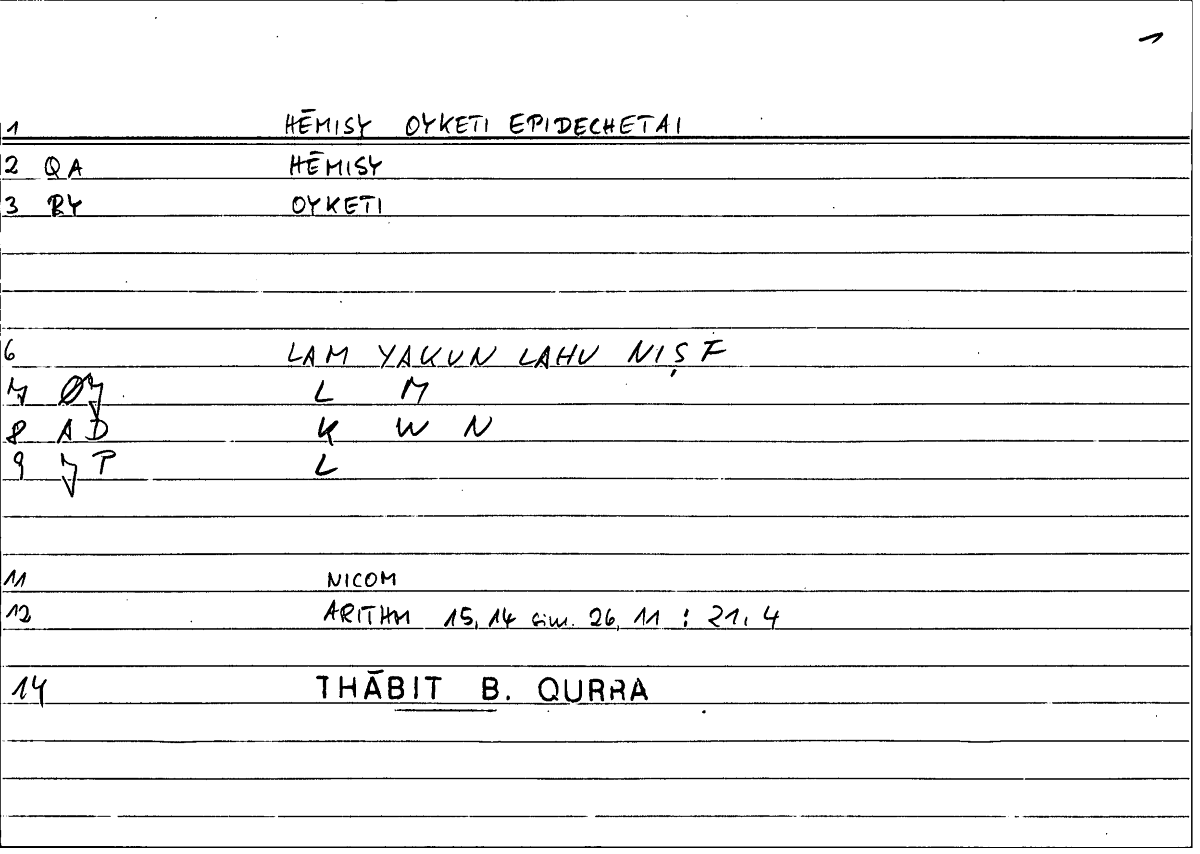 1
1 HĒMISY OYKETI EPIDECHETAI
2 QA HĒMISY
3 RY OYKETI
6 LAM YAKUN LAHU NIṢF
7 L M
8 AD K W N
9 L
11 NICOM
12 ARITHM 15, 14 sim. 26, 11 : 21, 4
14 THĀBIT B. QURRA